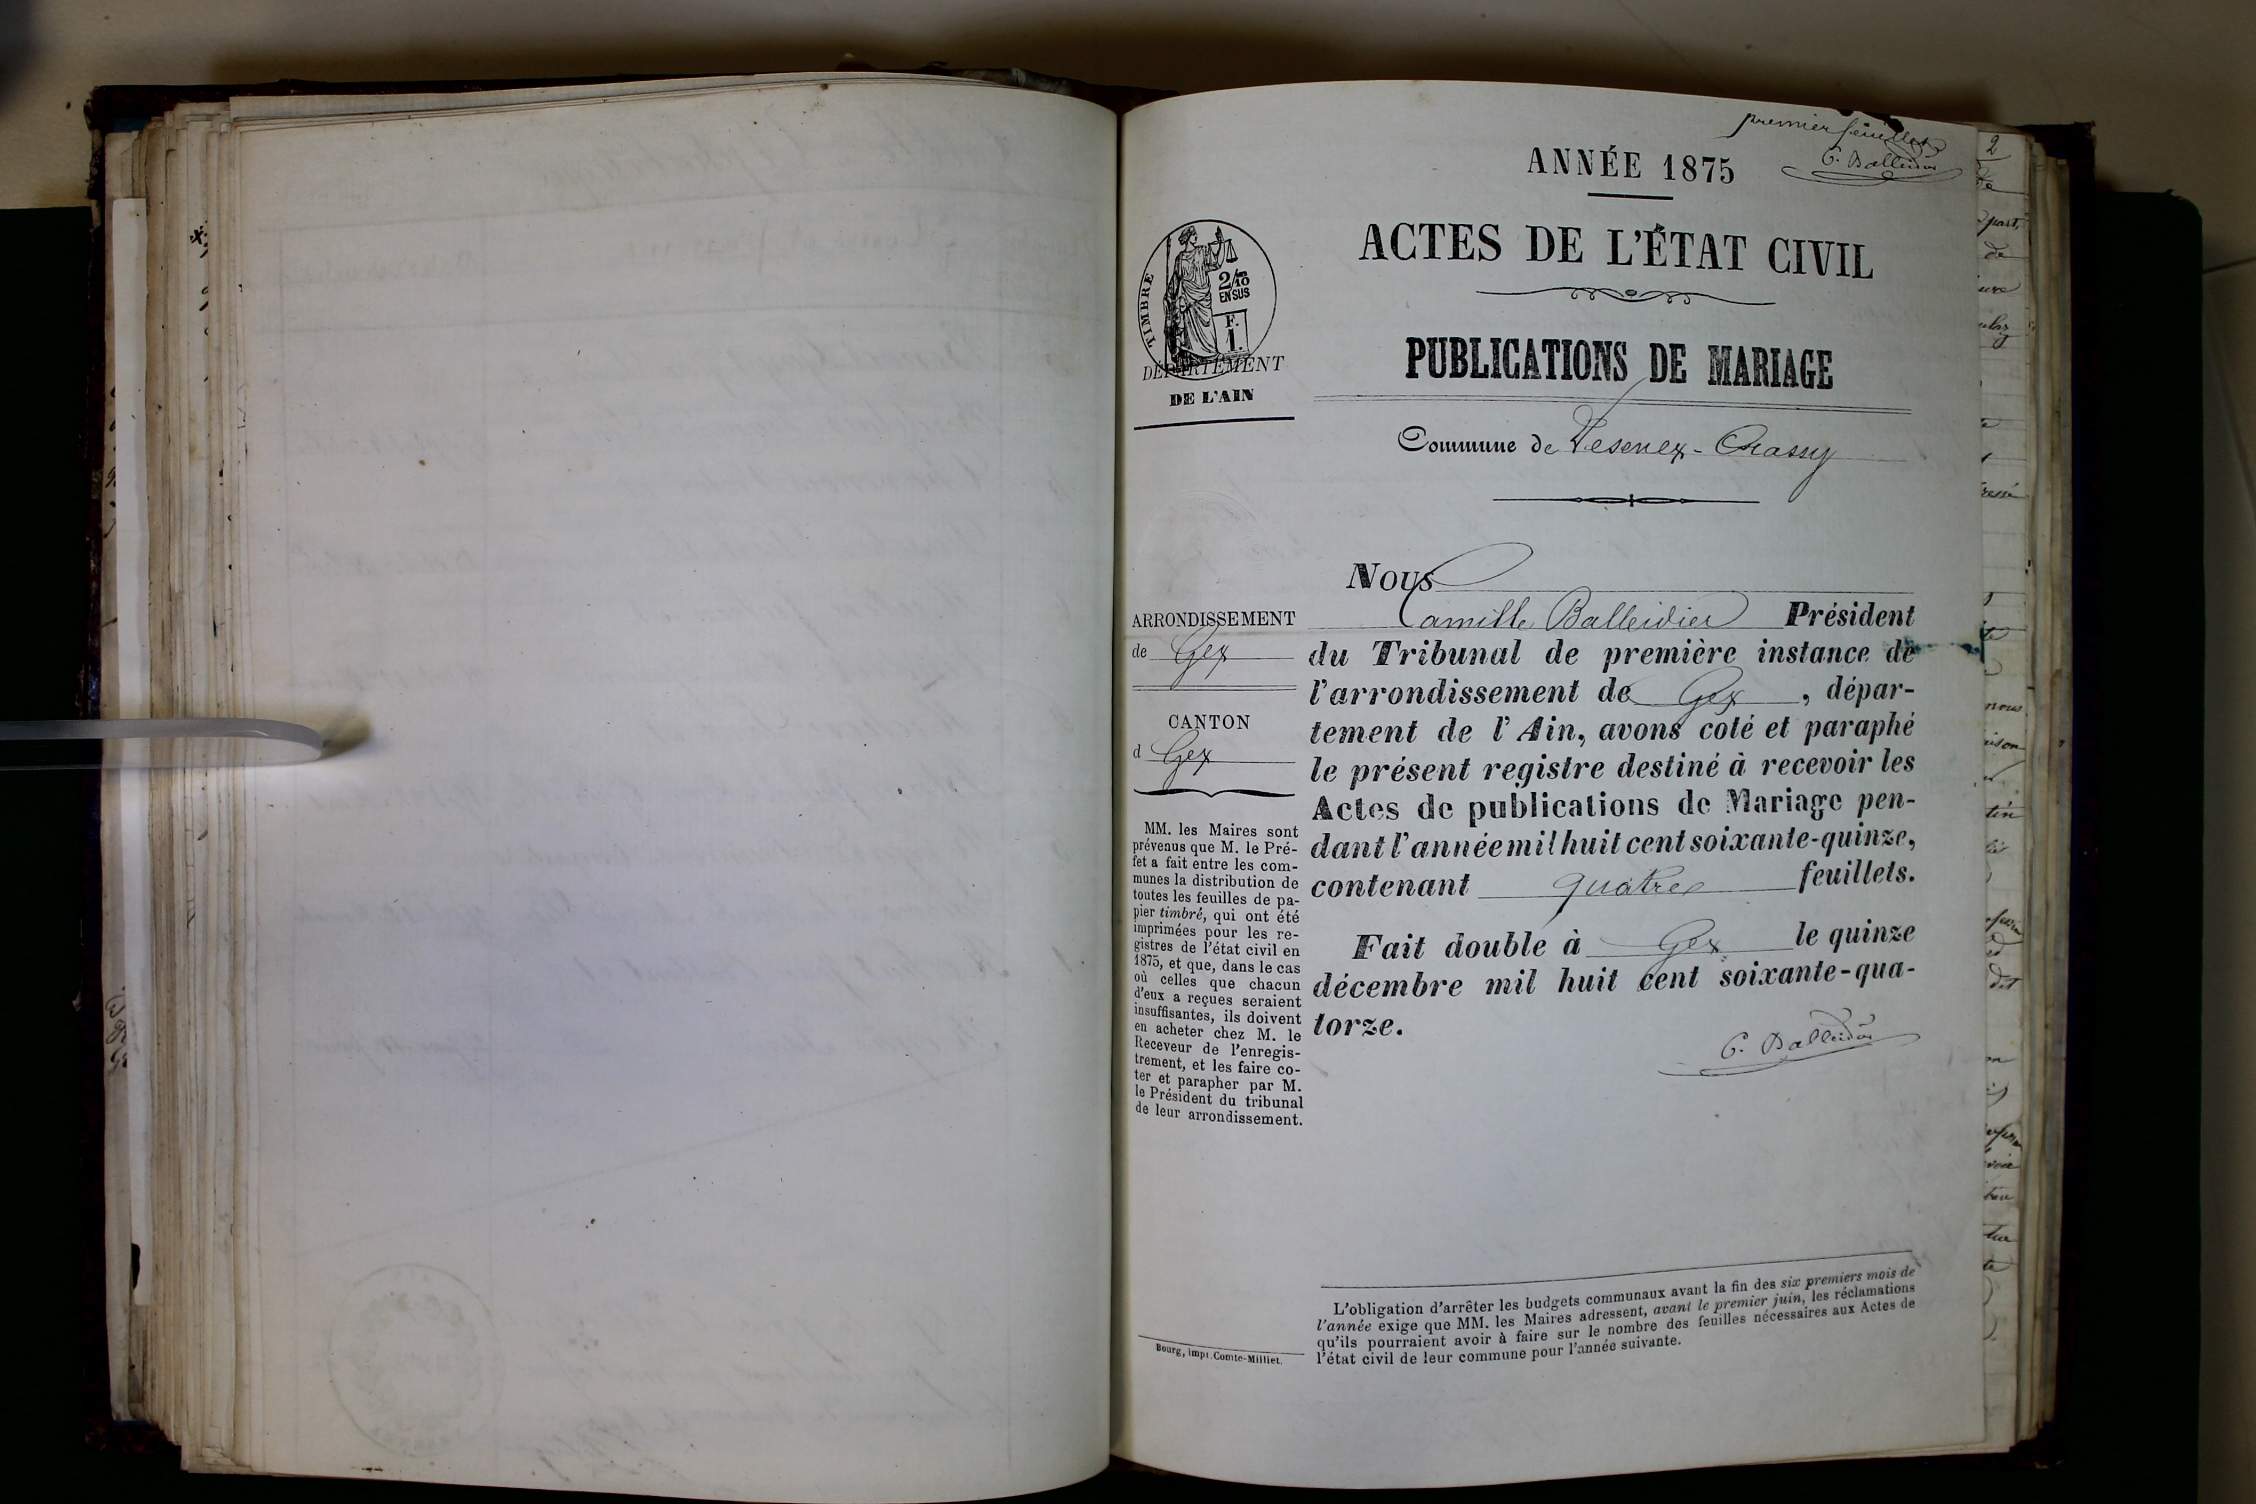 premier feuillet
C. Balleidier
2
ANNÉE 1875
ACTES DE L'ÉTAT CIVIL
TIMBRE
2/10
EN SUS
F.
1.
DÉPARTEMENT
DE L'AIN
PUBLICATIONS DE MARIAGE
Commune de Vesenex-Crassy
Nous
Camille Balleidier Président
du Tribunal de première instance de
l'arrondissement de Gex, dépar-
tement de l'Ain, avons coté et paraphé
le présent registre destiné à recevoir les
Actes de publications de Mariage pen-
dant l'année mil huit cent soixante-quinze,
contenant quatre feuillets.
Fait double à Gex le quinze
décembre mil huit cent soixante-qua-
torze.
C. Balleidier
ARRONDISSEMENT
de Gex
CANTON
d Gex
MM. les Maires sont
prévenus que M. le Pré-
fet a fait entre les com-
munes la distribution de
toutes les feuilles de pa-
pier timbré, qui ont été
imprimées pour les re-
gistres de l'état civil en
1875, et que, dans le cas
où celles que chacun
d'eux a reçues seraient
insuffisantes, ils doivent
en acheter chez M. le
Receveur de l'enregis-
trement, et les faire co-
ter et parapher par M.
le Président du tribunal
de leur arrondissement.
Bourg, impr. Comte-Milliet.
L'obligation d'arrêter les budgets communaux avant la fin des six premiers mois de
l'année exige que MM. les Maires adressent, avant le premier juin, les réclamations
qu'ils pourraient avoir à faire sur le nombre des feuilles nécessaires aux Actes de
l'état civil de leur commune pour l'année suivante.